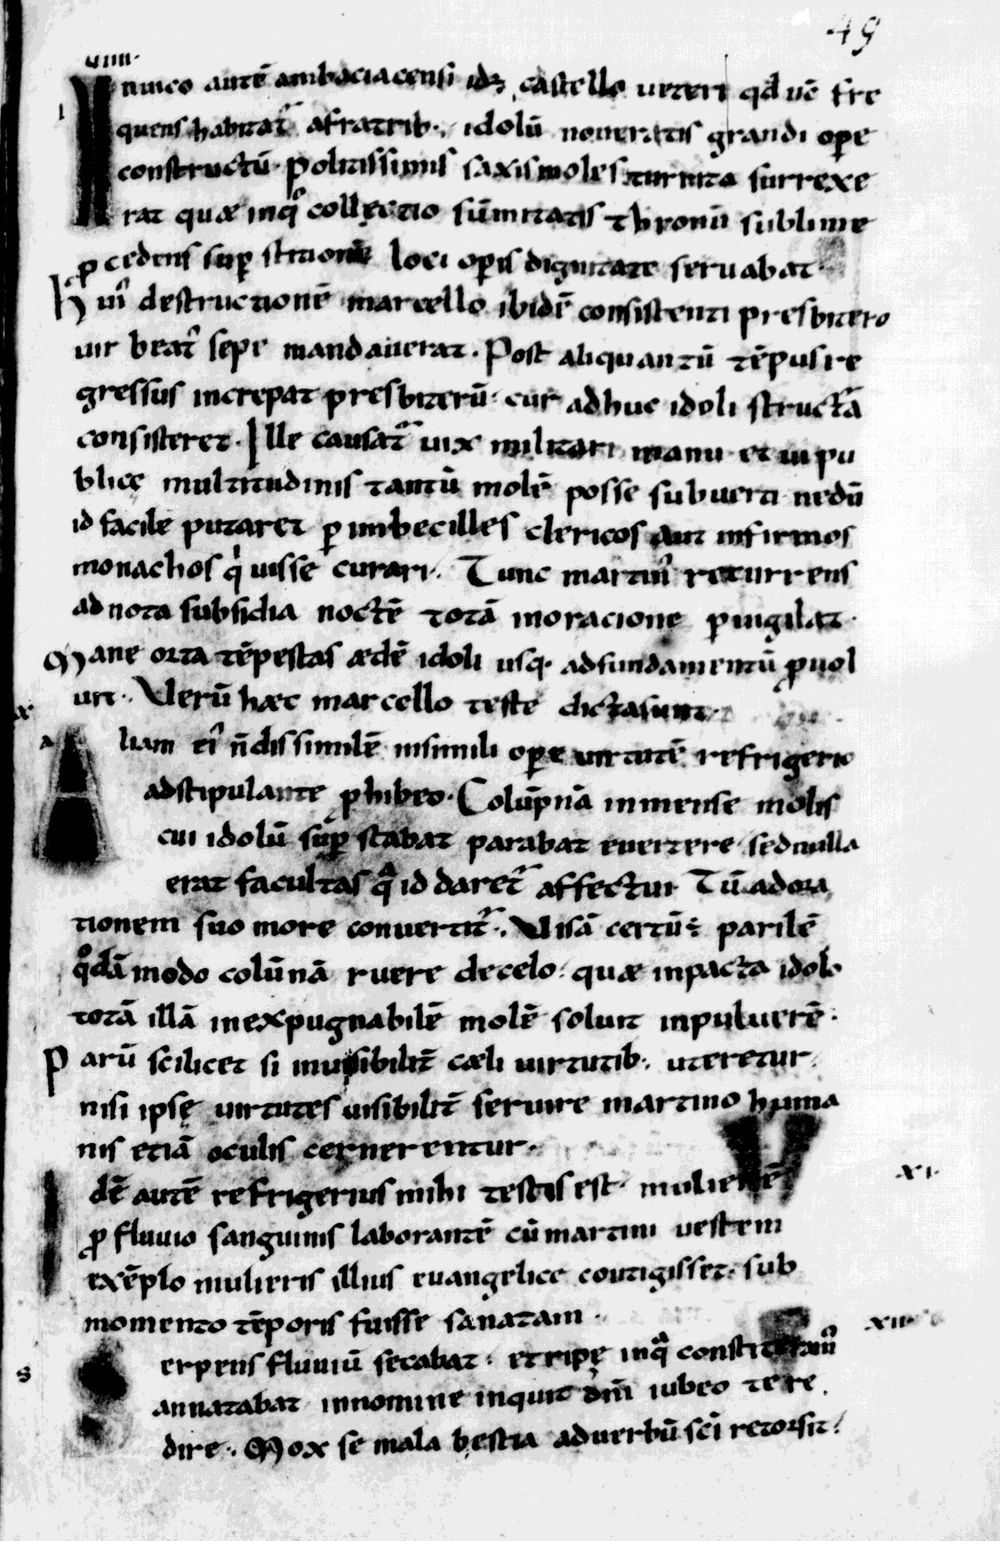 49
VIIII.
I nuico autē ambaciacensi idꝫ castello ueteri qđ ūc fre
quens habitat᷑ afratrib·, idolū noueratis grandi oꝑe
constructū· Politissimis saxis moles turrita surrexe
rat quæ inqͦ collęctio sūmitatis thronū sublime
ꝓcedens suꝑstitionē loci oꝑis dignitate seruabat·
hui᷒ destructionē marcello ibidē consistenti presbitero
uir beat᷒ sepe mandauerat· Post aliquantū tēpus re
gressus increpat presbiterū· cur adhuc idoli structā
consisteret· Ille causat᷑ uix militari manu et ui pu
blicę multitudinis tantū molē posse subuerti nedū
id facile putaret ꝑ imbecilles clericos aut infirmos
monachos qͥuisse curari·. Tunc martin᷒ recurrens
ad nota subsidia noctē totā inoracione ꝑuigilat·
Mane orta tēpestas ædē idoli usq· adfundamentū ꝓuol
uit· Uerū hæc marcello teste dicta sunt·
A liam ei᷒ n̄dissimilē nisimili oꝑe uirtutē refrigerio
adstipulante ꝑhibeo· Colūpnā inmense molis
cui idolū suꝑstabat parabat euertere sednulla
erat facultas qͣ id daret᷑ affectui Tū adora
tionem suo more conuertit᷑·. Uisā certū ÷ parilē
qͦdā modo colūnā ruere decelo· quæ inpacta idolo
totā illā inexpugnabilē molē soluit inpuluerē·
Parū scilicet si inuisibilit̄ cæli uirtutib·, uteretur·
nisi ipsę uirtutes uisibilit̄ seruire martino huma
nis etiā oculis cernerentur·
XI·
I dē autē refrigerius mihi testis est· mulierē
ꝓfluuio sanguinis laborantē cū martini uestem
exēplo mulieris illius euangelice contigisset· sub
momento tēporis fuisse sanatam·
XII
S erpens fluuiū secabat· et ripę inqͣ constiteram᷒
annatabat innomine inquit dn̄i iubeo te re
dire·. Mox se mala bestia aduerbū sc̄i retorsit·